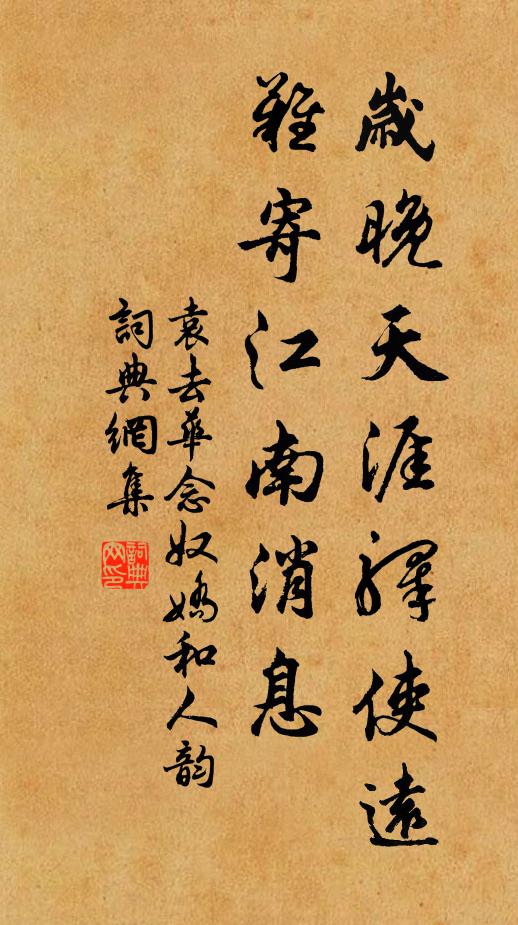 歲晚天涯驛使遠
難寄江南消息
袁去華念奴嬌和人韵
詞典網集
詞典網印